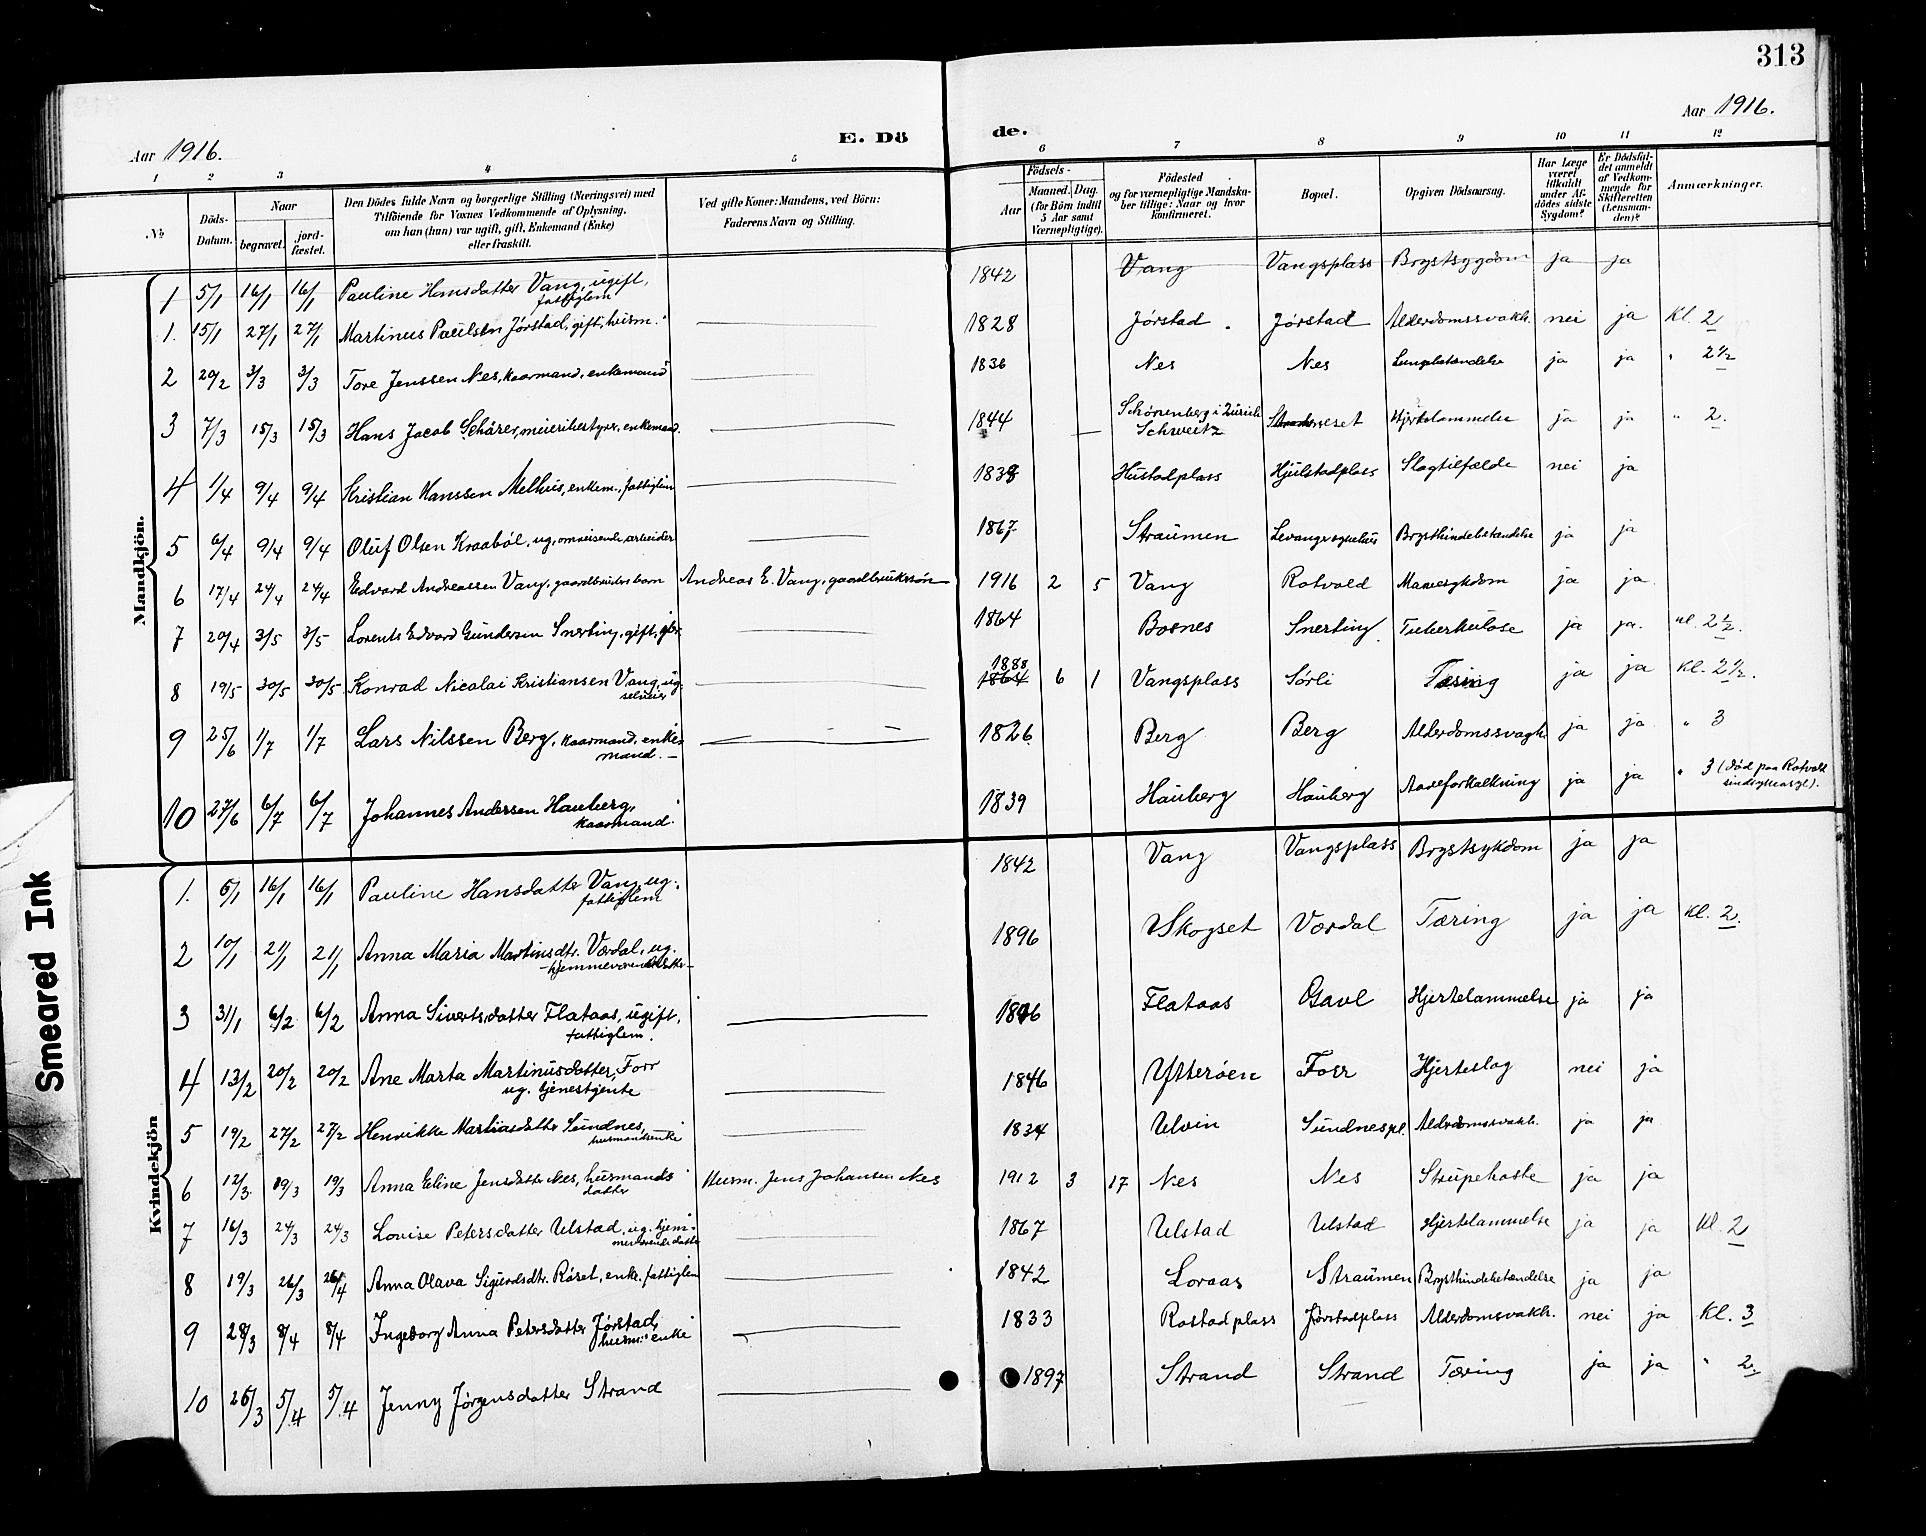 313
Aar 1916.
E. Dö de.
Aar 1916.
1 2 3 4 5 6 7 8 9 10 11 12
№
Döds-Datum.
Naar
begravet.
jord-fæstet.
Den Dödes fulde Navn og borgerlige Stilling (Næringsvei) med
Tilföiende for Voxnes Vedkommende af Oplysning,
om han (hun) var ugift, gift, Enkemand (Enke)
eller fraskilt.
Ved gifte Koner: Mandens, ved Börn:
Faderens Navn og Stilling.
Födsels-
Aar
Maaned. Dag.
(for Börn indtil
5 Aar samt
Værnepligtige).
Födested
og for værnepligtige Mandska-
ber tillige: Naar og hvor
konfirmeret.
Bopæl.
Opgiven Dödsaarsag.
Har Læge
været
tilkaldt
under Af-
dödes sidste
Sygdom?
Er Dödsfal-
det anmeldt
af Vedkom-
mende for
Skifteretten
(Lensman-
den)?
Anmærkninger.
Mandkjön.
1 5/1 16/1 16/1 Pauline Hansdatter Vang, ugift, fattiglem 1842 Vang Vangsplass Brystsygdom ja ja
1. 15/1 27/1 27/1 Martinus Paulsen Jórstad, gift, husm. 1828 Jórstad Jórstad Alderdomssvakh. nei ja Kl. 2
2 29/2 3/3 3/3 Tore Jenssen Nes, kaarmand, enkemand 1836 Nes Nes Lungebetændelse ja ja " 2 1/2
3 7/3 15/3 15/3 Hans Jacob Schärer, meieribestyrer, enkemand. 1844 Schönenberg i Zürich Schweitz Hjertelammelse ja ja " 2.
4 1/4 9/4 9/4 Kristian Hanssen Melhus, enkem., fattiglem 1838 Hustadplass Hjulstadplass Slagtilfælde nei ja
5 6/4 9/4 9/4 Oluf Olsen Kraaból, ug, omreisende arbeider 1867 Straumen Levanger sykehus Brysthindebetændelse ja ja
6 17/4 24/4 24/4 Edvard Andreassen Vang, gaardbrukers barn Andreas E. Vang, gaardbrukssön 1916 2 5 Vang Rotvold Mavesykdom ja ja.
7 20/4 3/5 3/5 Lorents Edvard Gundersen Snerting, gift, gbr. 1864 Bosnes Snerting Tuberkulose ja ja. Kl. 2 1/2.
8 19/5 30/5 30/5 Konrad Nicolai Kristiansen Vang, ug. selveier 1888 1864 6 1 Vangsplass Sórli Tæring ja ja Kl. 2 1/2.
9 25/6 1/7 1/7 Lars Nilssen Berg, kaarmand, enke-mand. 1826. Berg Berg Alderdomssvagh. ja ja " 3
10 27/6 6/7 6/7 Johannes Andersen Hauberg, kaarmand. 1839 Hauberg Hauberg Aareforkalkning ja ja " 3 (død paa Rotvoll sindsykeasyl).
Kvindekjön
1. 5/1 16/1 16/1 Pauline Hansdatter Vang, ug. fattiglem 1842 Vang Vangsplass Brystsykdom ja ja
2 10/1 21/1 21/1 Anna Maria Martinsdtr. Værdal, ug. hjemmeværende datter 1896 Skogset Værdal Tæring ja ja Kl. 2.
3 31/1 6/2 6/2 Anna Sivertsdatter Flataas, ugift, fattiglem. Flataas Gavl Hjertelammelse ja ja
4 13/2 20/2 20/2 Ane Marta Martinusdatter Forr ug. tjenestjente 1846 Ytteröen Forr Hjerteslag nei ja
5 19/2 27/2 27/2 Henrikke Mathiasdatter Sundnes, husmandsenke 1834 Ulvin Sundnespl. Alderdomssvakh. ja ja
6 12/3 19/3 19/3 Anna Eline Jensdatter Nes, husmands datter Husm. Jens Johansen Nes 1912 3 17 Nes Nes Strupehoste ja ja
7 16/3 24/3 24/3 Lovise Petersdatter Ulstad, ug. hjem-meværende datter 1867 Ulstad Ulstad Hjertelammelse ja ja Kl. 2
8 19/3 26/3 26/4 Anna Olava Sigurdsdtr. Róset, enke, fattiglem 1842 Loraas Straumen Brysthindebetændelse ja ja
9 28/3 8/4 8/4 Ingeborg Anna Petersdatter Jórstad, husm. enke 1833 Rostadplass Jórstadplass Alderdomsvakh. nei ja Kl. 3
10 26/3 5/4 5/4 Jenny Jórgensdatter Strand 1897 Strand Strand Tæring ja ja " 2.
Smeared Ink